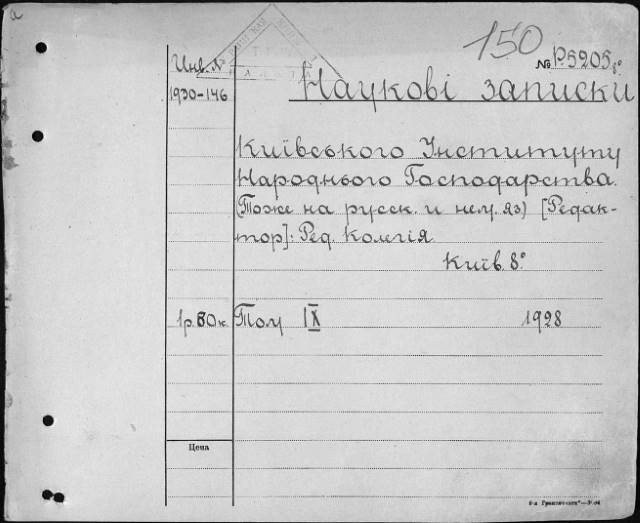 а
150
№ Р5205 8°
Инв. №
1930-146
Наукові записки
Київського Інституту
Народнього Господарства.
(Тоже на русск. и нем. яз) [Редак-
тор]: Ред. Колегія.
Київ. 8°.
1р.80к. Том IX 1928
Цена